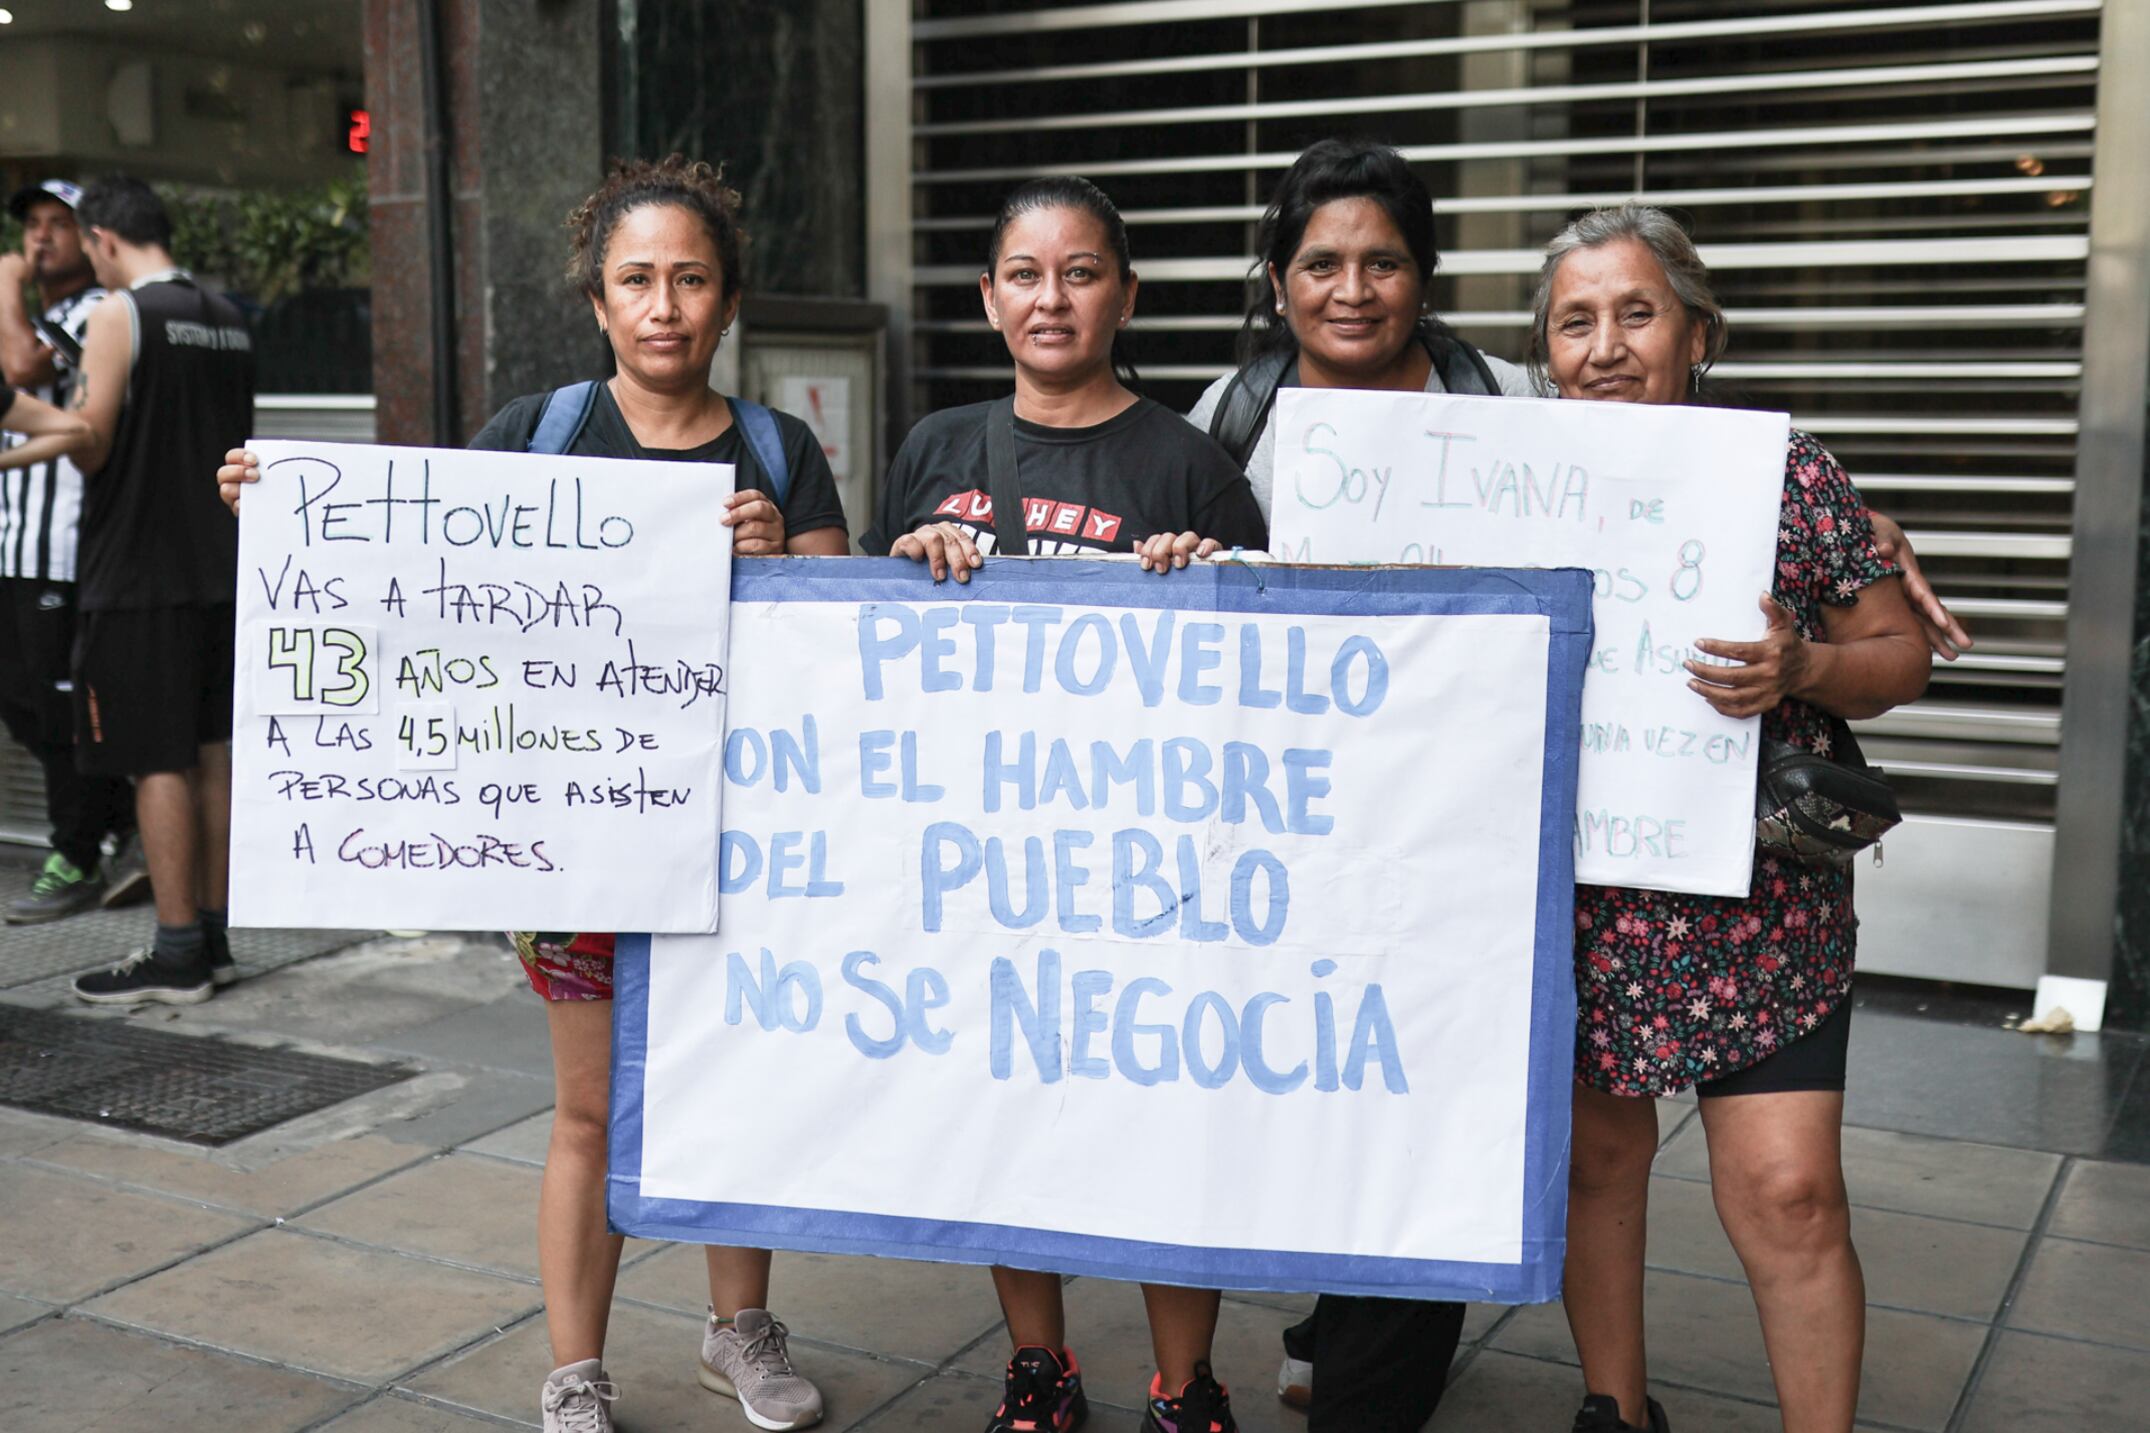 PETTOVELLO
VAS A TARDAR
43 AÑOS EN ATENDER
A LAS 4,5 MILLONES DE
PERSONAS QUE ASISTEN
A COMEDORES.
PETTOVELLO
ON EL HAMBRE
DEL PUEBLO
NO SE NEGOCIA
SOY IVANA, DE
8
UNA VEZ EN
AMBRE